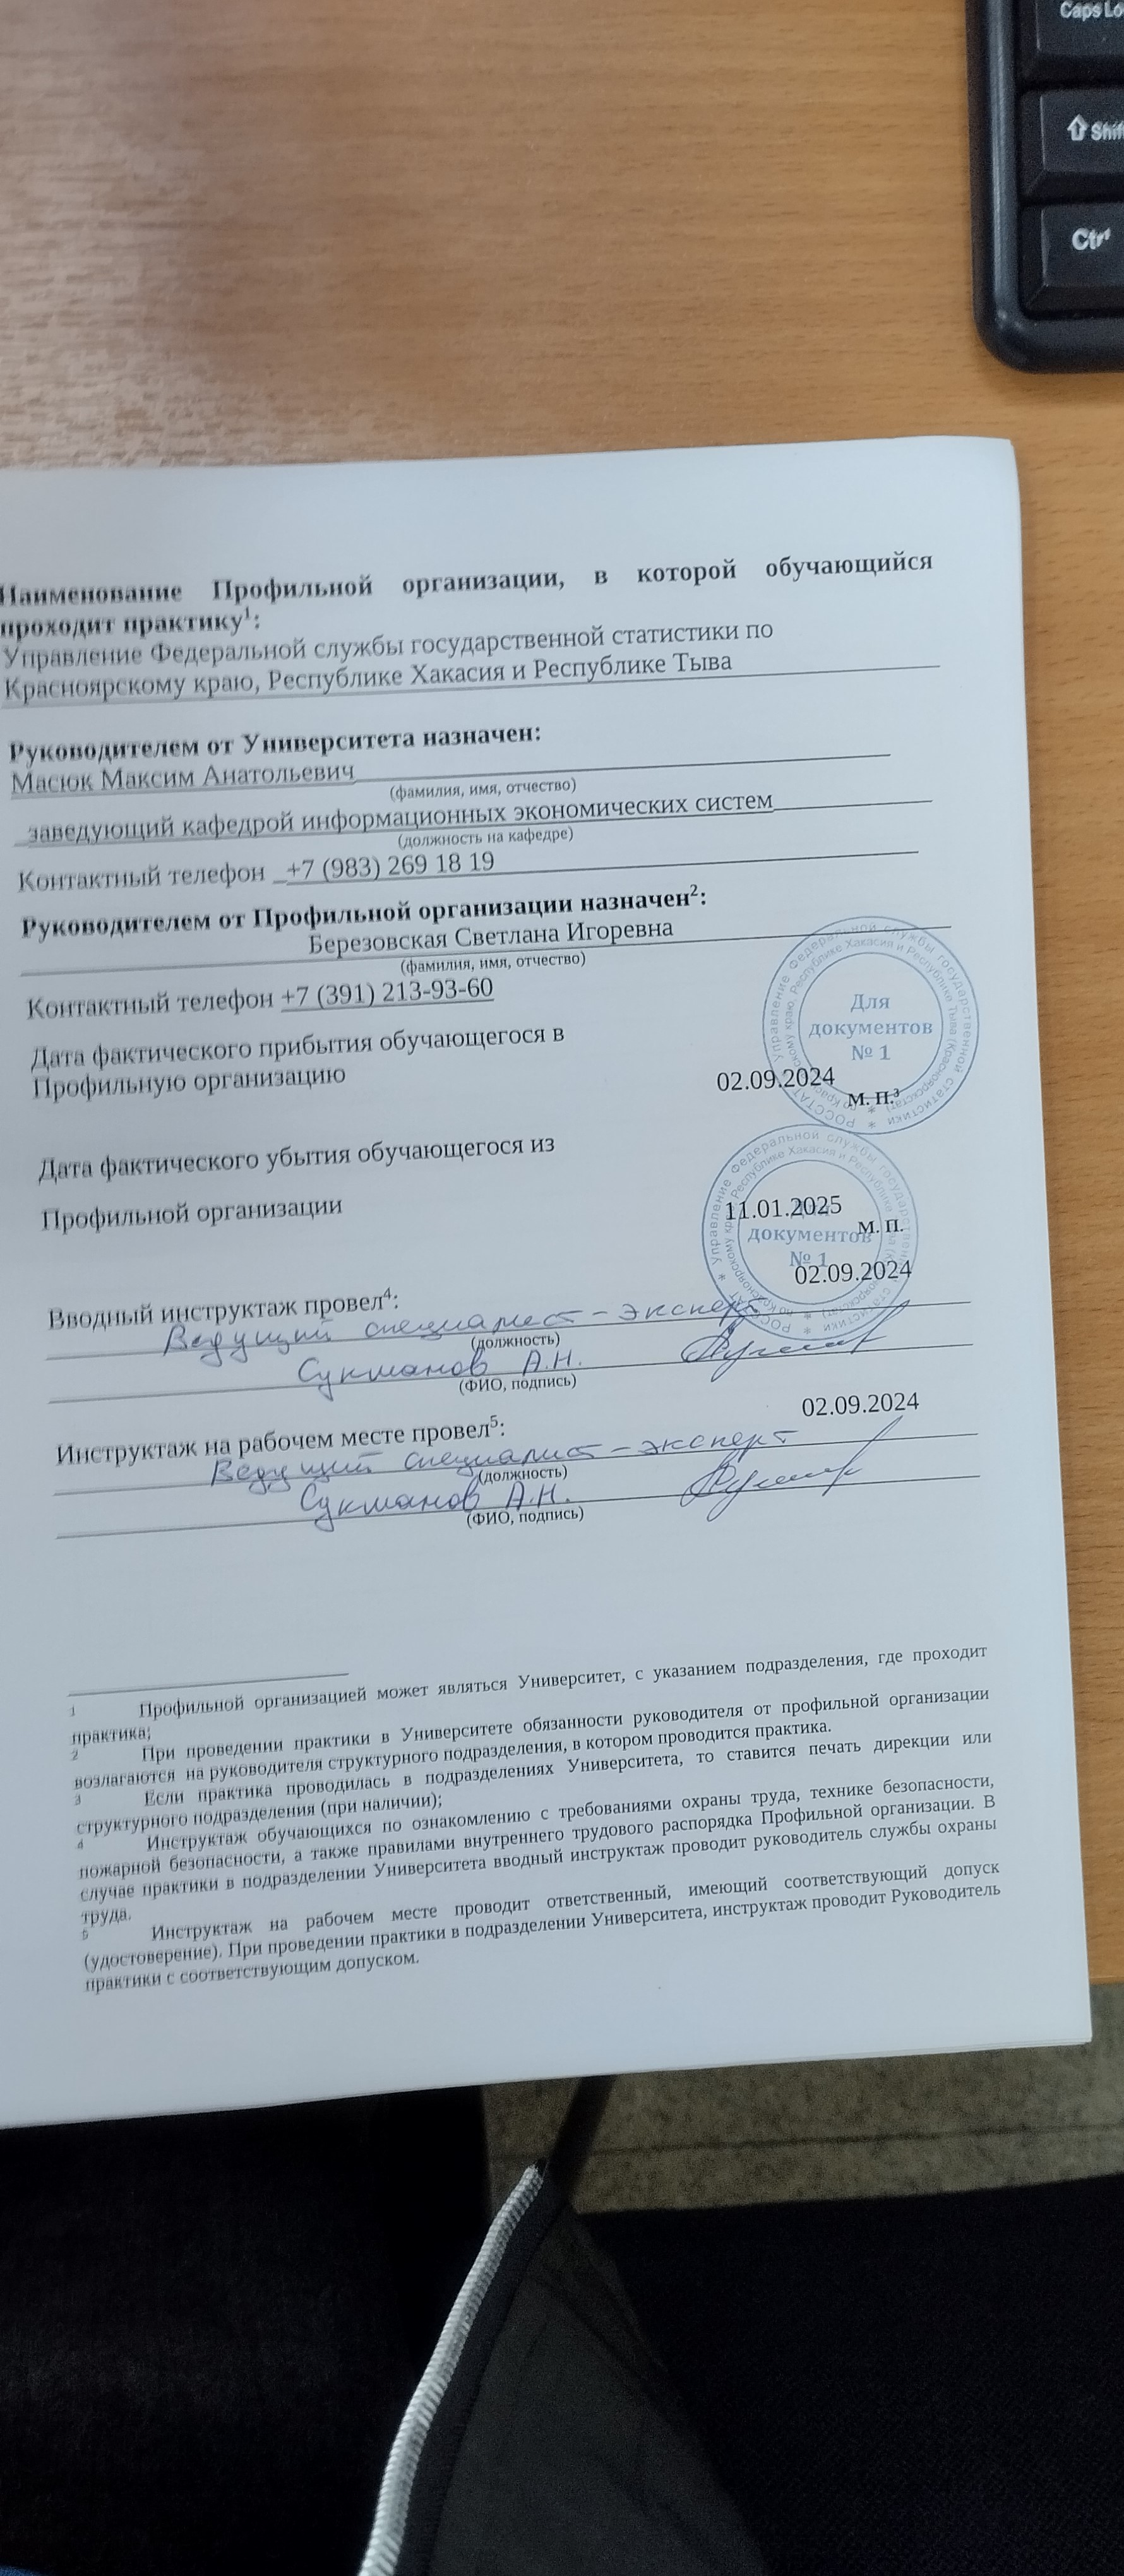 Caps Lo
Shif
Ctrl
Наименование Профильной организации, в которой обучающийся
проходит практику1:
Управление Федеральной службы государственной статистики по
Красноярскому краю, Республике Хакасия и Республике Тыва
Руководителем от Университета назначен:
Масюк Максим Анатольевич
(фамилия, имя, отчество)
заведующий кафедрой информационных экономических систем
(должность на кафедре)
Контактный телефон +7 (983) 269 18 19
Руководителем от Профильной организации назначен2:
Березовская Светлана Игоревна
(фамилия, имя, отчество)
Контактный телефон +7 (391) 213-93-60
Дата фактического прибытия обучающегося в
Профильную организацию
02.09.2024
М. П.3
Для
документов
№ 1
Дата фактического убытия обучающегося из
Профильной организации
11.01.2025
М. П.
документов
№ 1
02.09.2024
Вводный инструктаж провел4:
Ведущий специалист-эксперт
(должность)
Сукманов А.Н.
(ФИО, подпись)
02.09.2024
Инструктаж на рабочем месте провел5:
Ведущий специалист-эксперт
(должность)
Сукманов А.Н.
(ФИО, подпись)
1 Профильной организацией может являться Университет, с указанием подразделения, где проходит
практика;
2 При проведении практики в Университете обязанности руководителя от профильной организации
возлагаются на руководителя структурного подразделения, в котором проводится практика.
3 Если практика проводилась в подразделениях Университета, то ставится печать дирекции или
структурного подразделения (при наличии);
4 Инструктаж обучающихся по ознакомлению с требованиями охраны труда, технике безопасности,
пожарной безопасности, а также правилами внутреннего трудового распорядка Профильной организации. В
случае практики в подразделении Университета вводный инструктаж проводит руководитель службы охраны
труда.
5 Инструктаж на рабочем месте проводит ответственный, имеющий соответствующий допуск
(удостоверение). При проведении практики в подразделении Университета, инструктаж проводит Руководитель
практики с соответствующим допуском.